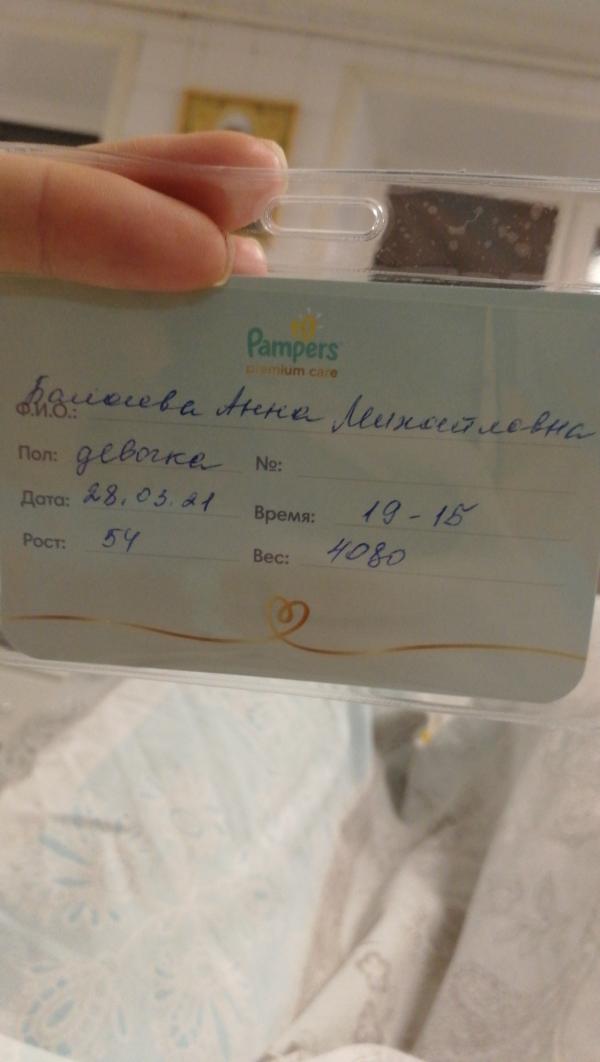 Pampers
premium care
Ф.И.О.: Анна Михайловна
Пол: девочка №:
Дата: 28.03.21 Время: 19-15
Рост: 54 Вес: 4080